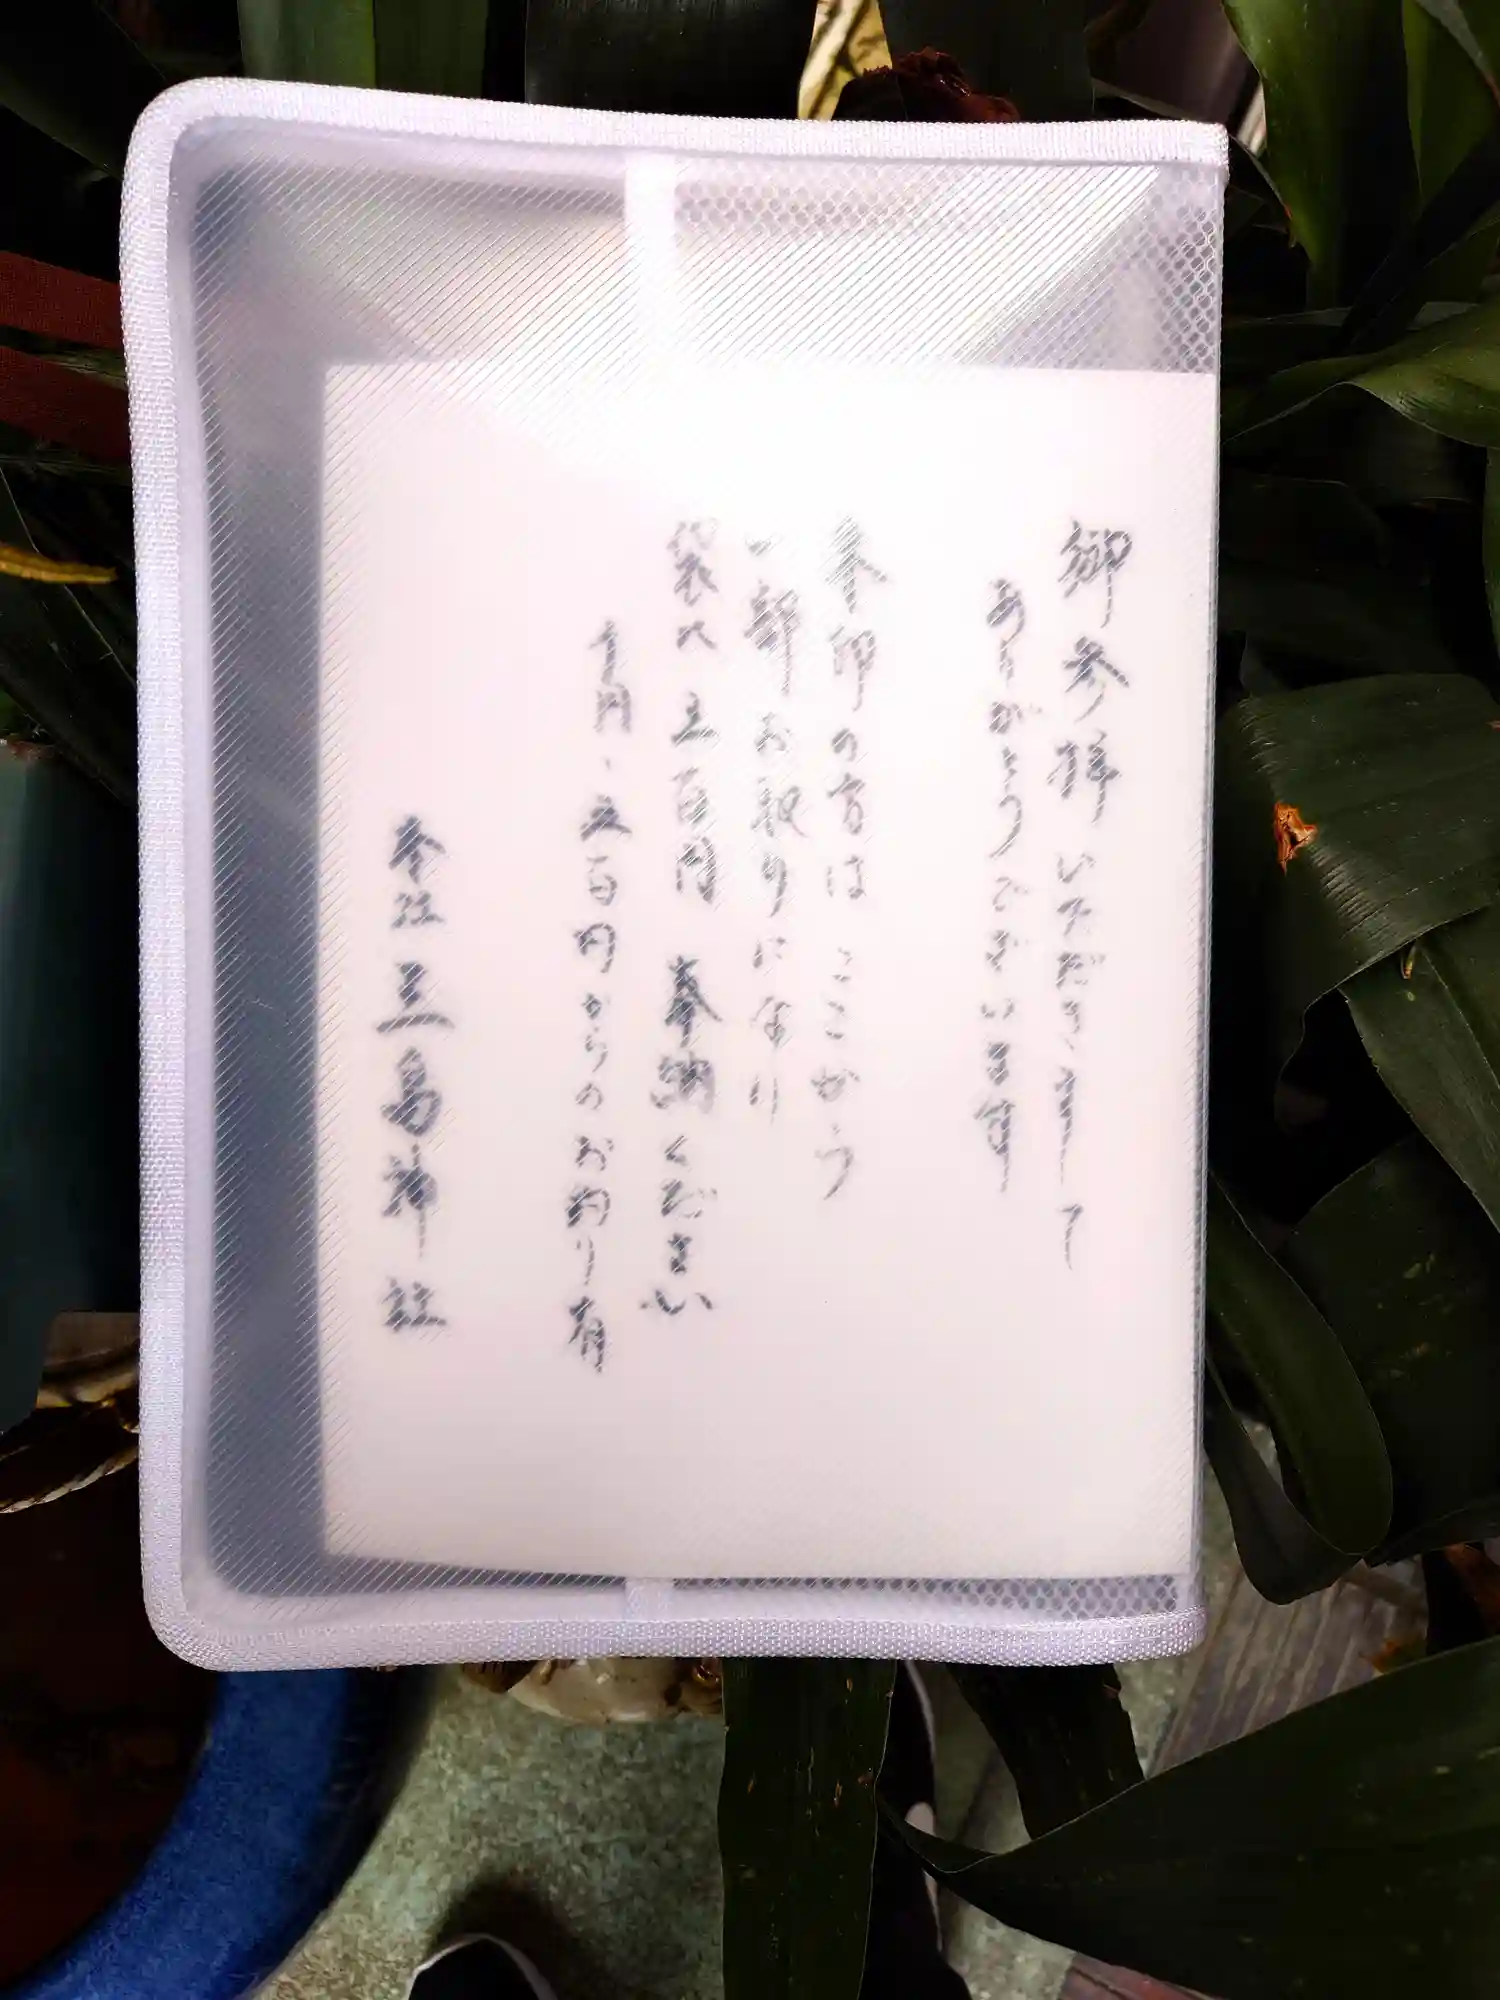 御参拝いただきまして
ありがとうございます
朱印の方は ここから
一部お取りになり
袋へ 五百円 奉納ください
千円、五百円からのお釣り有
本社 三島神社